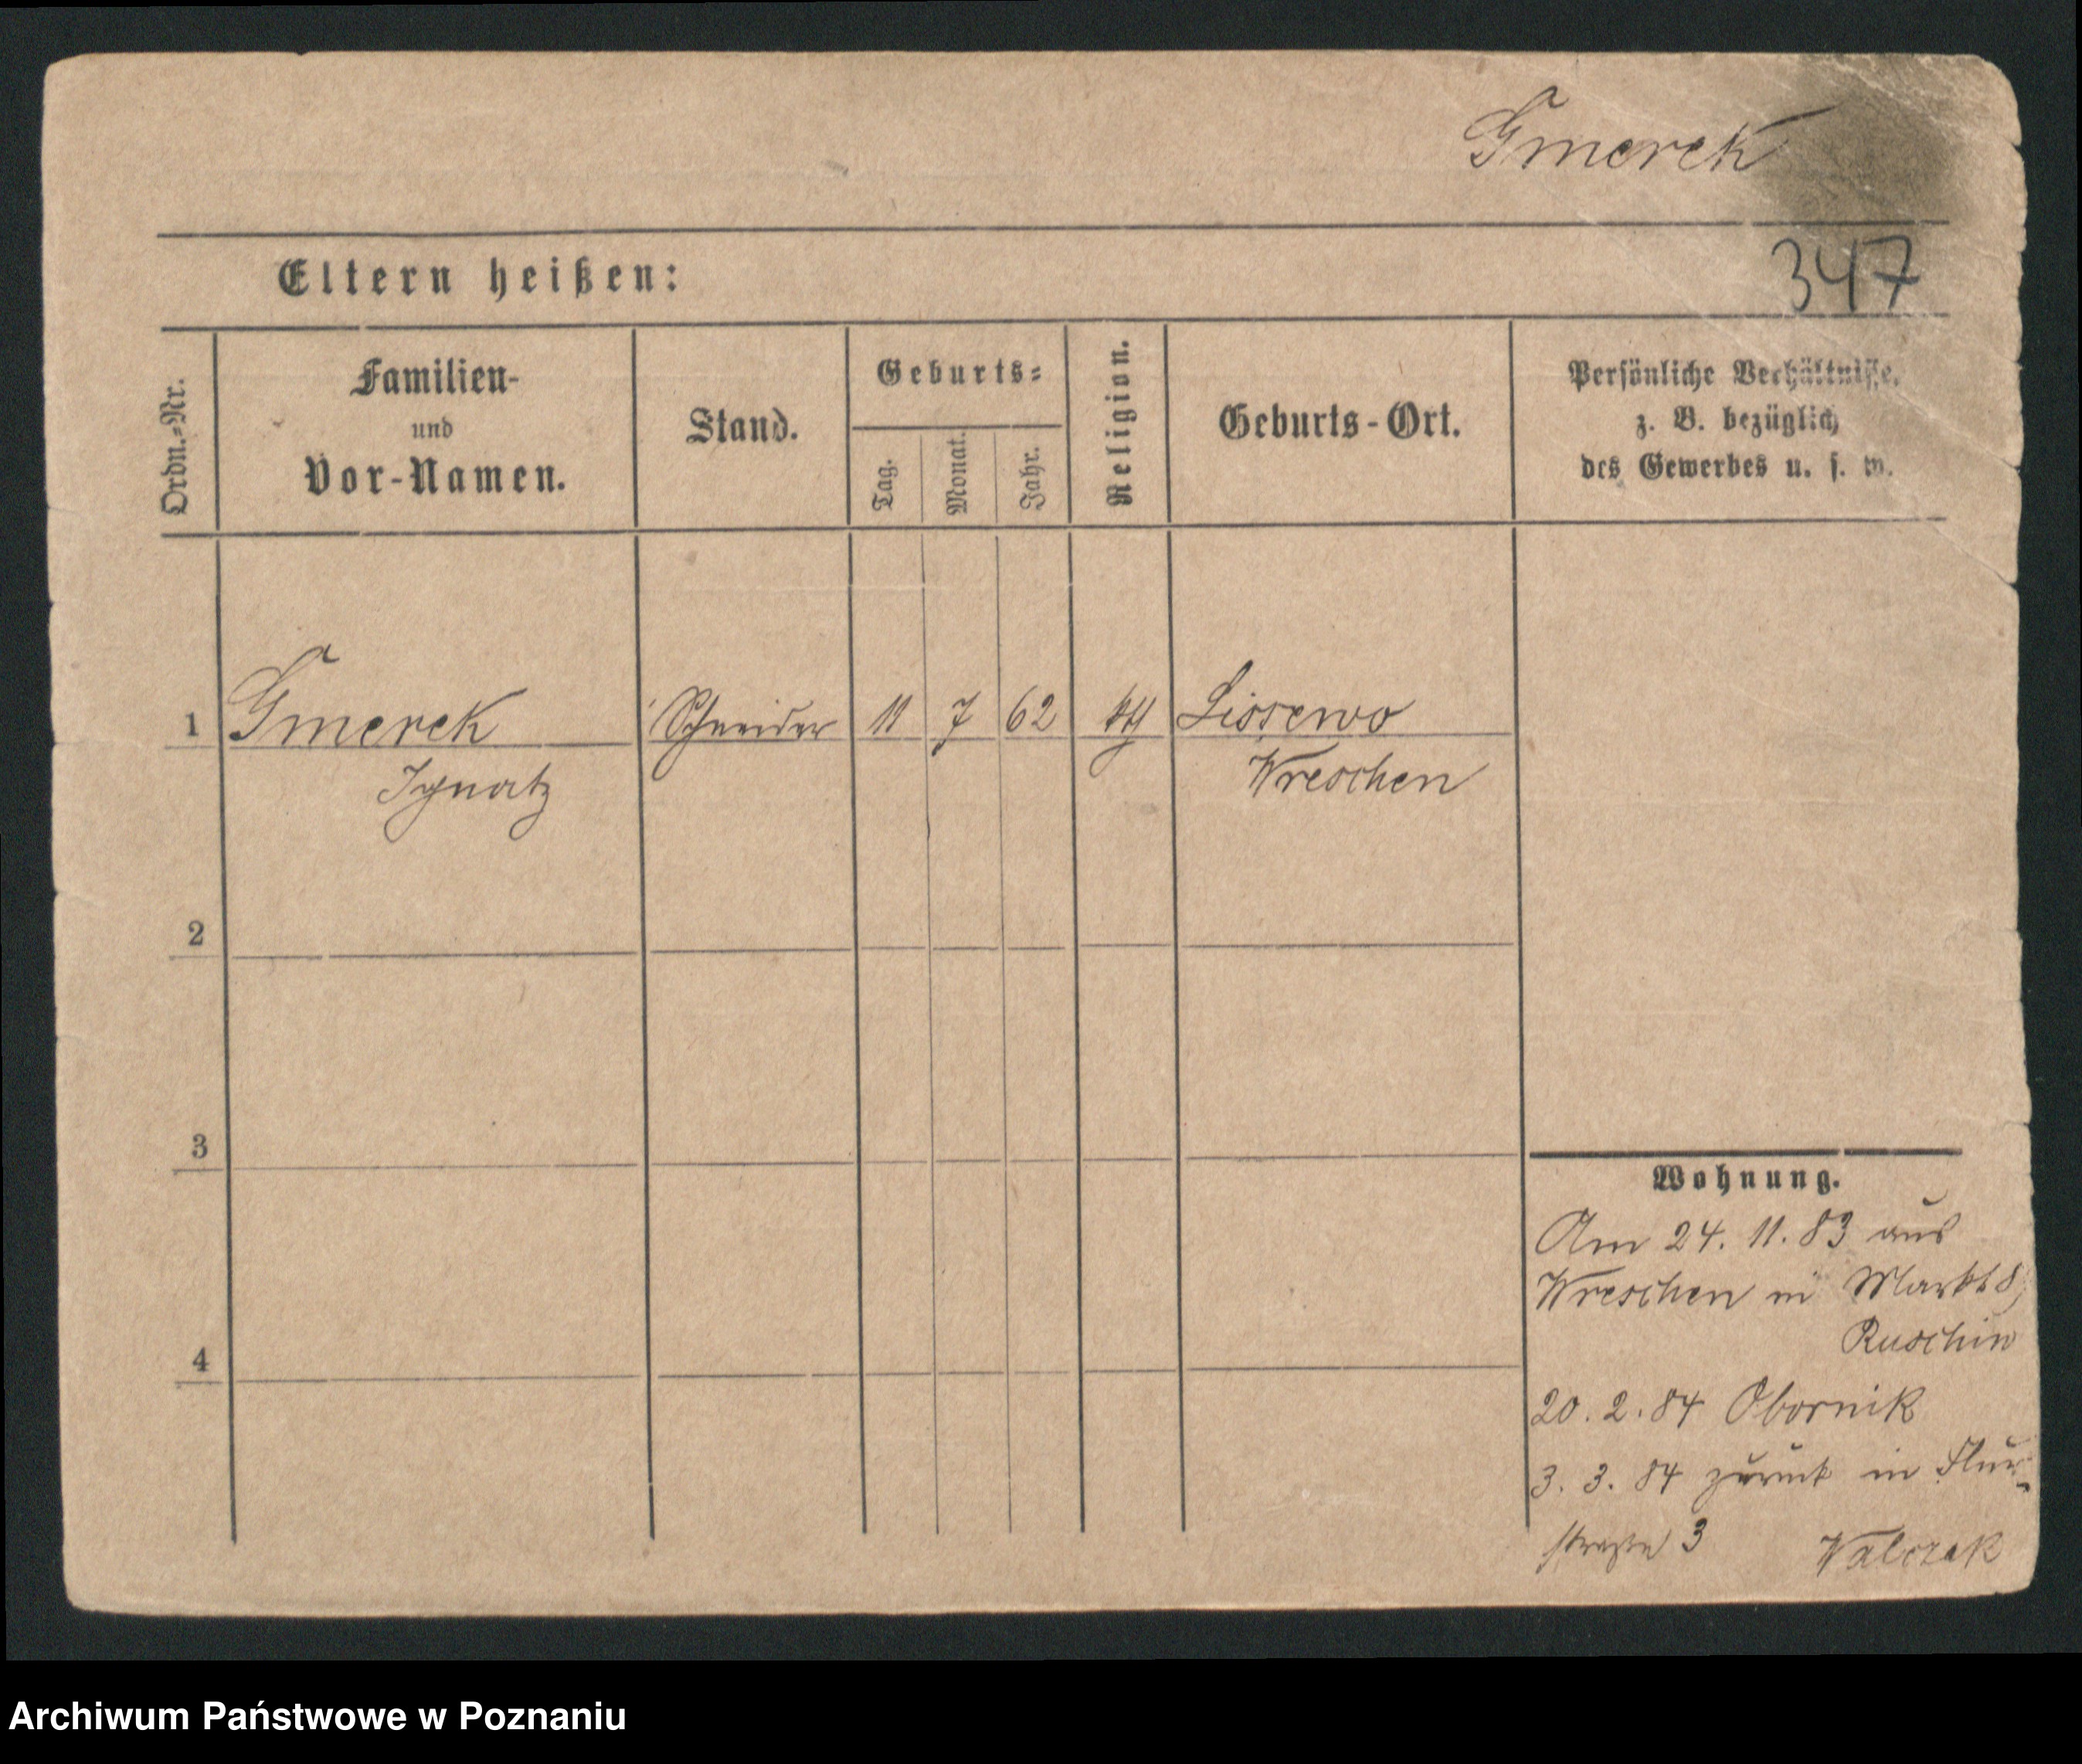 Gmerek
347
Eltern heißen:
Ordn.=Nr.
Familien-
und
Vor-Namen.
Stand.
Geburts=
Tag.
Monat.
Jahr.
Religion.
Geburts-Ort.
Persönliche Verhältnisse,
z. B. bezüglich
des Gewerbes u. s. w.
1 Gmerek Schneider 11 7 62 kth Lissewo
Ignatz Wreschen
2
3
4
Wohnung.
Am 24. 11. 83 aus
Wreschen in Markt 8,
Ruschin
20. 2. 84 Obornik
3. 3. 84 zurück in Flur-
straße 3 Walczak
Archiwum Państwowe w Poznaniu